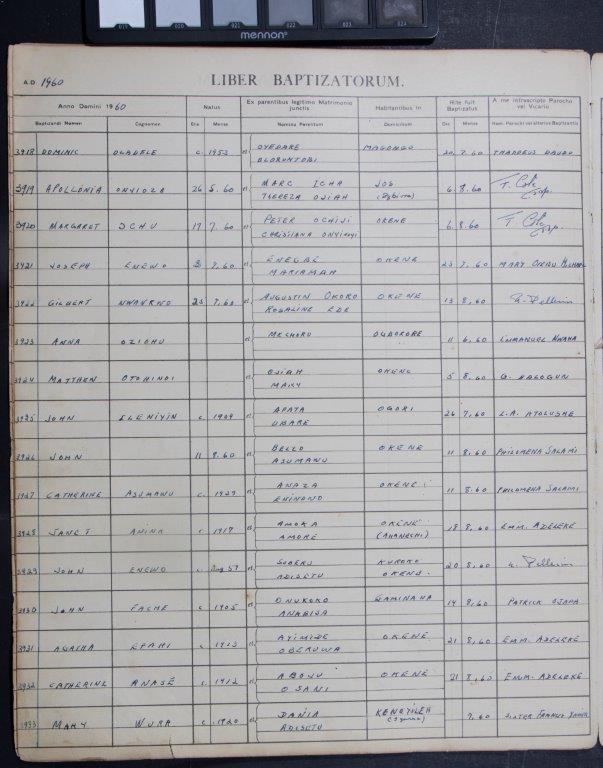 019 020 021 022 023 024
mennon
A.D. 1960 LIBER BAPTIZATORUM.
Anno Domini 1960 Natus Ex parentibus legitimo Matrimonio junctis Habitantibus in Rite fuit Baptizatus A me infrascripto Parocho vel Vicario
Baptizandi Nomen Cognomen Die Mense Nomina Parentum Domicilium Die Mense Nom. Parochi vel alterius Baptizantis
3918 DOMINIC OLADELE c. 1953 et OYEDARE OLORUNTOBI MAGONGO 20 7.60 THADDEUS DAUDU
3919 APOLLONIA ONYIOZA 26 5.60 et MARC ICHA THEREZA OJIAH JOS 6.8.60 T. Cole
3920 MARGARET OCHU 17 7.60 et PETER OCHIJI OKENE 6.8.60 T Cole
3921 JOSEPH ENEWO 3 7.60 et ENEGBE MARIAMAH OKENE 23 7.60 MARY
3922 GILBERT NWANKWO 23 7.60 et AUGUSTIN OKORO ROSALINE EDE OKENE 13 8.60 Pellerin
3923 ANNA OZIOHU et MECHORO OGBOKORE 11 6.60 EMMANUEL NWAHA
3924 MATTHEW OTOHINOI et OJIAH MARY OKENE 5 8.60 G. BALOGUN
3925 JOHN ELENIYIN c. 1909 et APATA UBARE OGORI 26 7.60 E.A. AYOLUGBE
3926 JOHN 11 8.60 et BELLO ASUMANU OKENE 11 8.60 PHILOMENA SALAMI
3927 CATHERINE ASUMAWU c. 1929 et ANAZA OKENE 11 8.60 PHILOMENA SALAMI
3928 JANET AMINA c. 1917 et AMOKA AMORE OKENE 18 8.60 EMM. ADELEKE
3929 JOHN ENEWO c. Aug 57 et ADISETU KUROKO OKENE. 20 8.60 Pellerin
3930 JOHN FACHE c. 1905 et ONUKOKO ANABIJA GAMINANA 14 8.60 PATRICK OJAPA
3931 AGATHA EPAHI c. 1913 et AYIMIZE OBEROWA OKENE 21 8.60 EMM. ADELEKE
3932 CATHERINE ANASÉ c. 1912 et ABOJU OSANI OKENE 21 8.60 EMM. ADELEKE
3933 MARY WURA c. 1920 et DANIA ADISETU 7.60 SISTER